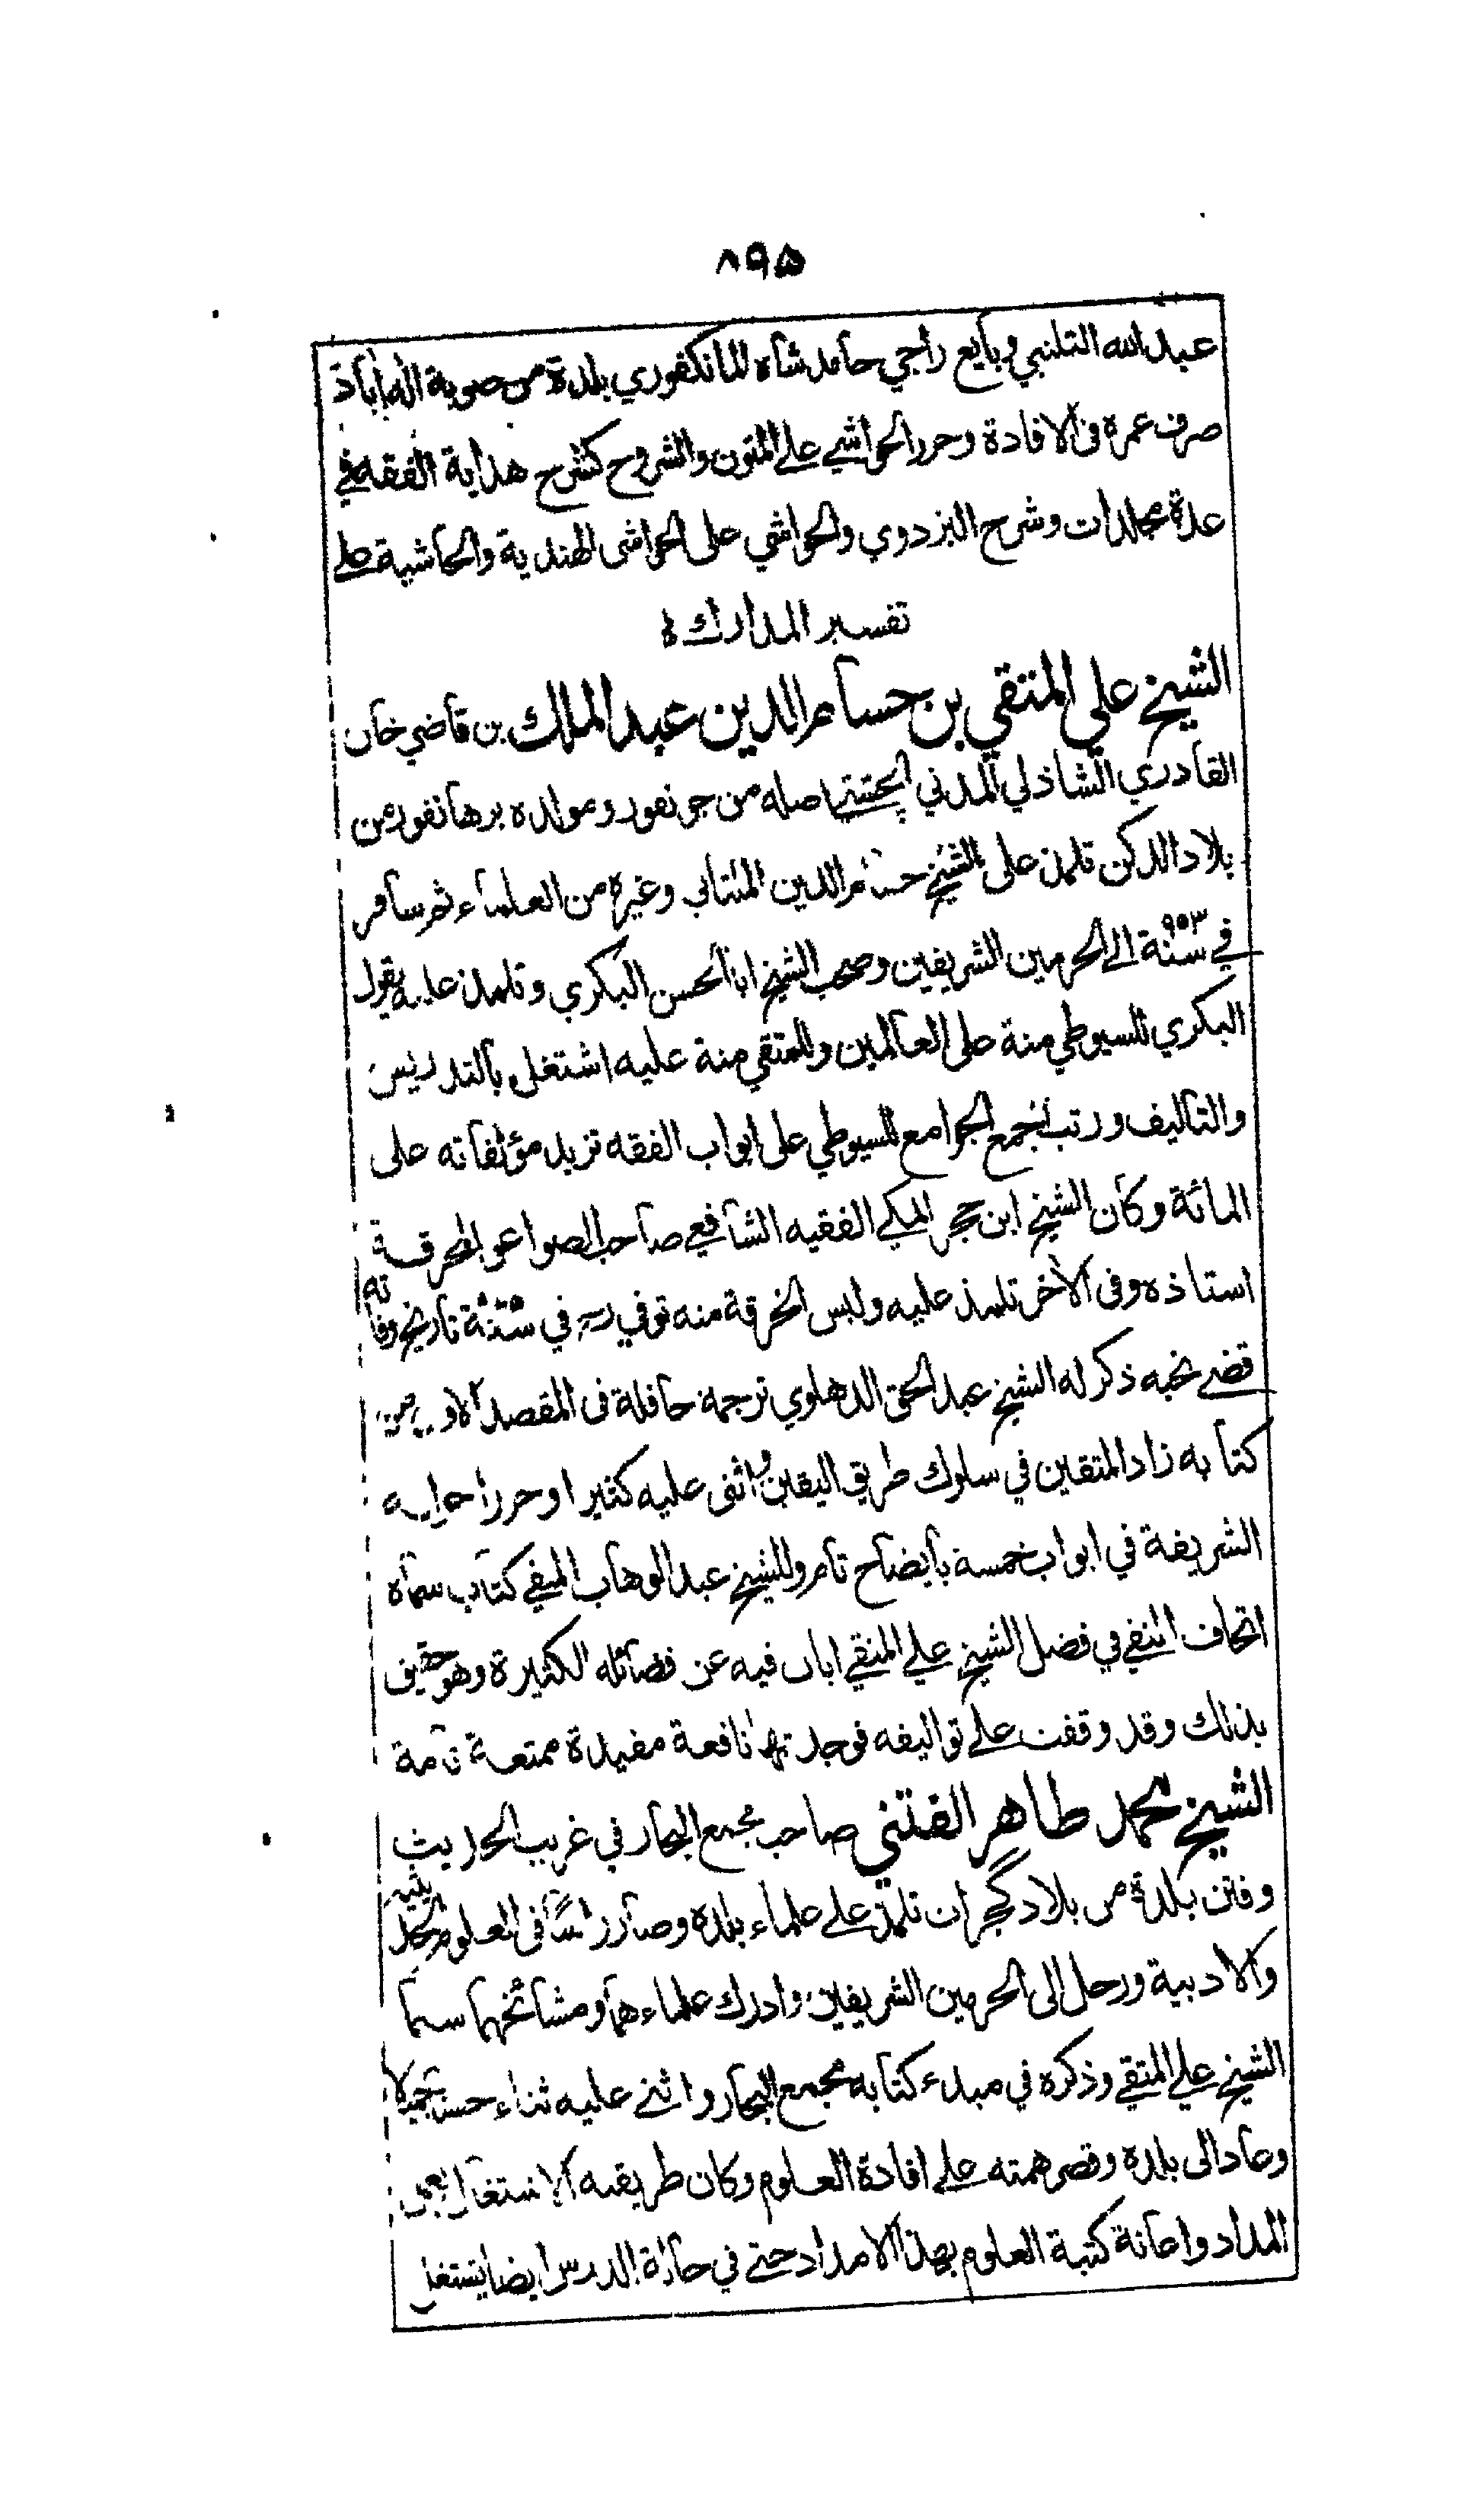 ٨٩٥
عبد الله التلنبي وبايع راجي حامد شاه المانكفوري بلدة من صوبة اله اباد
صرف عمره فى الافادة وحرر الحواشي على المتون والشروح كشرح هداية الفقه في
عدة مجلدات وشرح البزدوي والحواشي على الحواشى الهندية والحاشية على
تفسير المدارك ه
الشيخ علي المتقي بن حسام الدين عبد الملك بن قاضي خان
القادري الشاذلي المدني الچشتي اصله من جونفور ومولده برهانفور من
بلاد الدكن تلمذ على الشيخ حسام الدين المتتابى وغيره من العلماء ثم سافر
في سنة ٩٥٣ الى الحرمين الشريفين وصحب الشيخ ابا الحسن البكري وتلمذ عليه يقول
البكري للسيوطي منة على العالمين وللمتقي منة عليه اشتغل بالتدريس
والتاليف ورتب جمع الجوامع للسيوطي على ابواب الفقه تزيد مؤلفاته على
المائة وكان الشيخ ابن حجر المكي الفقيه الشافعي صاحب الصواعق المحرقة
استاذه وفى الآخر تلمذ عليه ولبس الخرقة منه توفي رح في سنة تاريخ وفاته
قضى نحبه ذكر له الشيخ عبد الحق الدهلوي ترجمة حافلة فى المقصد الاول من
كتابه زاد المتقين في سلوك طريق اليقين واثنى عليه كثيرا وحرر احواله
الشريفة في ابواب خمسة بايضاح تام وللشيخ عبد الوهاب المتقي كتاب سماه
اتحاف التقي في فضل الشيخ علي المتقي ابان فيه عن فضائله الكثيرة وهو حقيق
بذلك وقد وقفت على تواليفه فوجدتها نافعة مفيدة ممتعة تامة
الشيخ محمد طاهر الفتني صاحب مجمع البحار في غريب الحديث
وفتن بلدة من بلاد گجرات تلمذ على علماء بلده وصار راسًا فى العلوم الحديثية
والادبية ورحل الى الحرمين الشريفين وادرك علماءهما ومشائخهما سيما
الشيخ علي المتقي وذكره في مبدء كتابه مجمع البحار واثنى عليه ثناء حسنا جميلا
وعاد الى بلده وقصر همته على افادة العلوم وكان طريقه الاشتغال بعمل
المداد واعانة كتبة العلوم بهذا الامداد حتى في حالة الدرس ايضا يشتغل